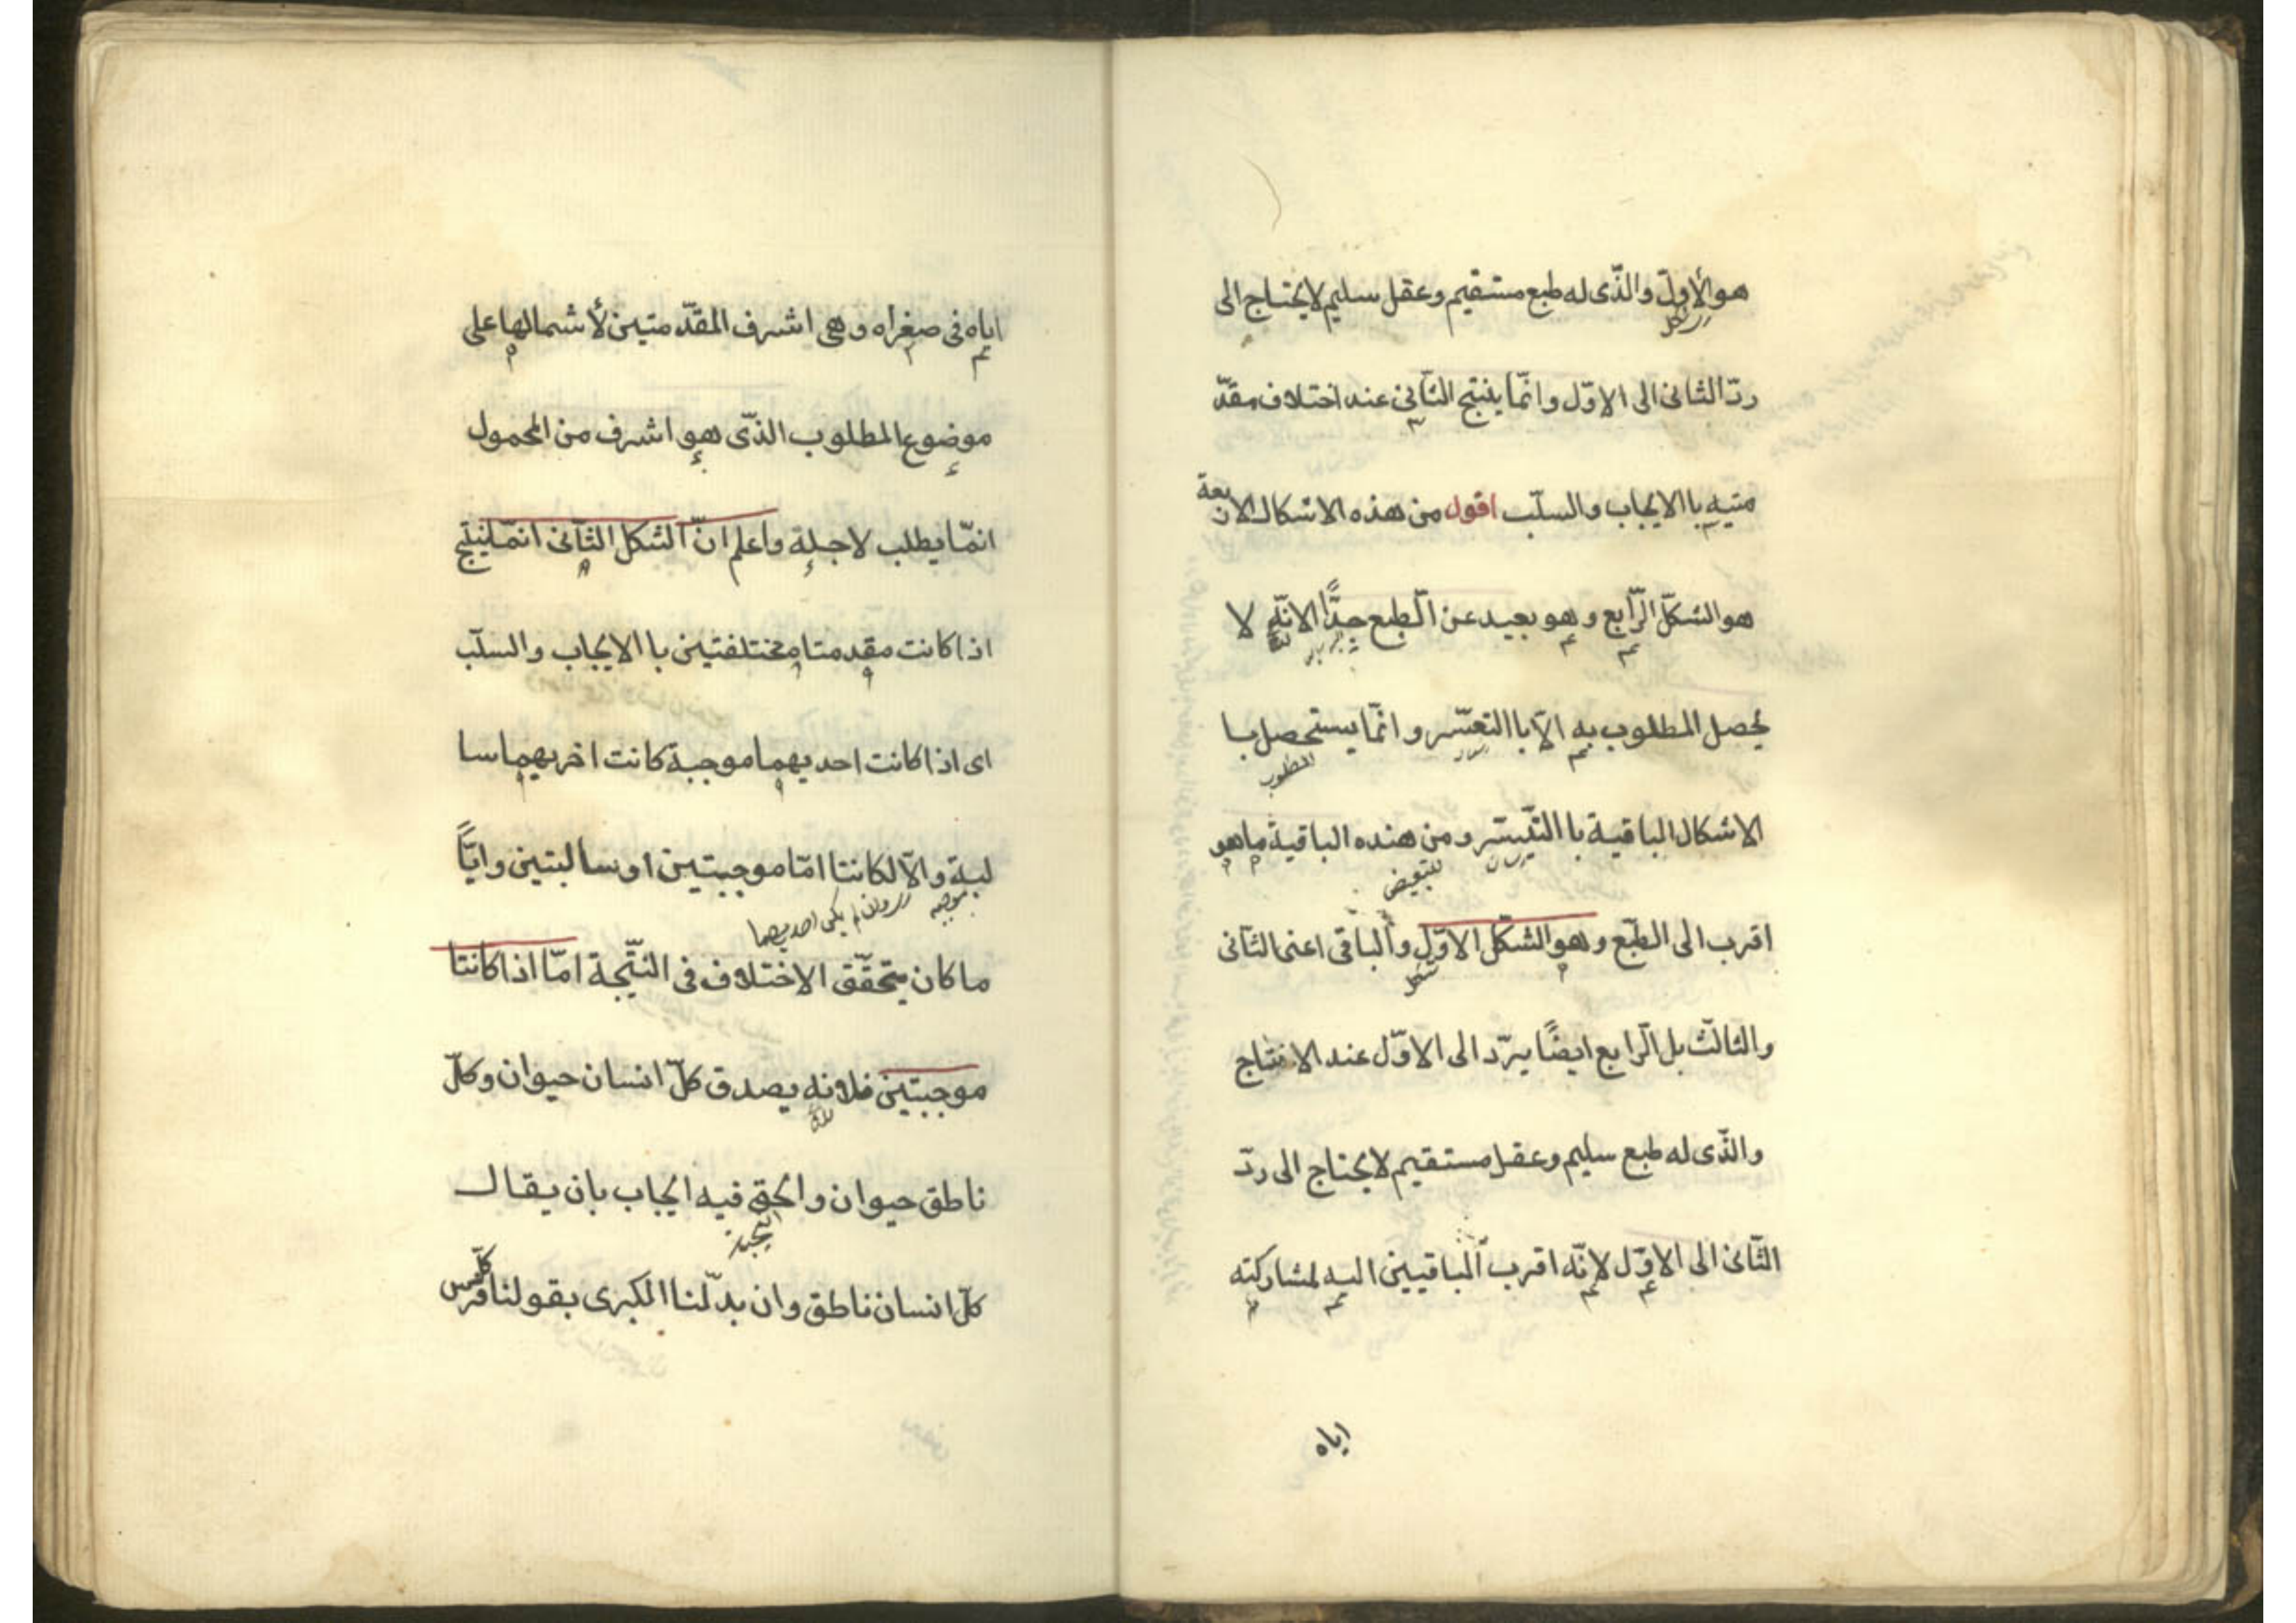 هو الأوّل والذّى له طبع مستقيم وعقل سليم لا يحتاج الى
ردّ الثانى الى الاوّل وانّما ينتج الثّانى عند اختلاف مقدّ
متيه با الايجاب والسلّب اقول من هذه الاشكال الاربعة
هو الشكلّ الرّابع وهو بعيد عن الّطبع جدًّا لانّه لا
يحصل المطلوب به الاّ با التعسّر وانّما يستحصل با
المطلوب
الاشكال الباقية با التّيسّر ومن هنده الباقية ما هو
للتبعيض
اقرب الى الطّبع وهو الشكّل الاوّل والباقى اعنى الثّانى
شكل
والثالّث بل الرّابع ايضًا يردّ الى الاوّل عند الانتاج
والذّى له طبع سليم وعقل مستقيم لا يحتاج الى ردّ
الثّانى الى الاوّل لانّه اقرب الباقيين اليه لمشاركته
اياه
اياه فى صغراه وهى اشرف المقدّمتين لأشمالها على
موضوع المطلوب الذّى هو اشرف من المحمول
انمّا يطلب لاجله واعلم انّ الشكل الثّانى انمّا ينتج
اذا كانت مقدمتا مختلفتين با الايجاب والسلّب
اى اذا كانت احديهما موجبة كانت اخريهما سا
لبة والاّ لكانتا امّا موجبتين او سالبتين وايّاً
موجبه
وان لم يكن احديهما
ما كان يتحّقق الاختلاف فى النّتيجة امّا اذا كانتا
موجبتين فلانه يصدق كلّ انسان حيوان وكلّ
ناطق حيوان والحق فيه ايجاب بان يقال
النتيجة
كلّ انسان ناطق وان بدّلنا الكبرى بقولنا كلّ فرس